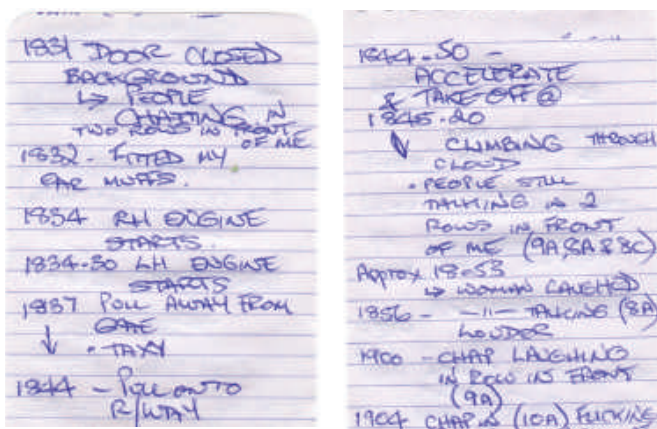 1831 DOOR CLOSED
BACKGROUND
↳ PEOPLE
CHATTING IN
TWO ROWS IN FRONT
OF ME
1832 - FITTED MY
EAR MUFFS.
1834 RH ENGINE
STARTS.
1834-30 LH ENGINE
STARTS
1837 PULL AWAY FROM
GATE
↓ • TAXY
1844 - PULL ONTO
R/WAY
1844-50 -
ACCELERATE
& TAKE OFF @
1845-20
↓ CLIMBING THROUGH
CLOUD
• PEOPLE STILL
TALKING IN 2
ROWS IN FRONT
OF ME (9A, 8A & 8C)
Approx 18-53
↳ WOMAN CAUGHED
1856 - -11- TALKING (8A)
LOUDER
1900 - CHAP LAUGHING
IN ROW IN FRONT
(9A)
1904 CHAP IN (10A) FLICKING